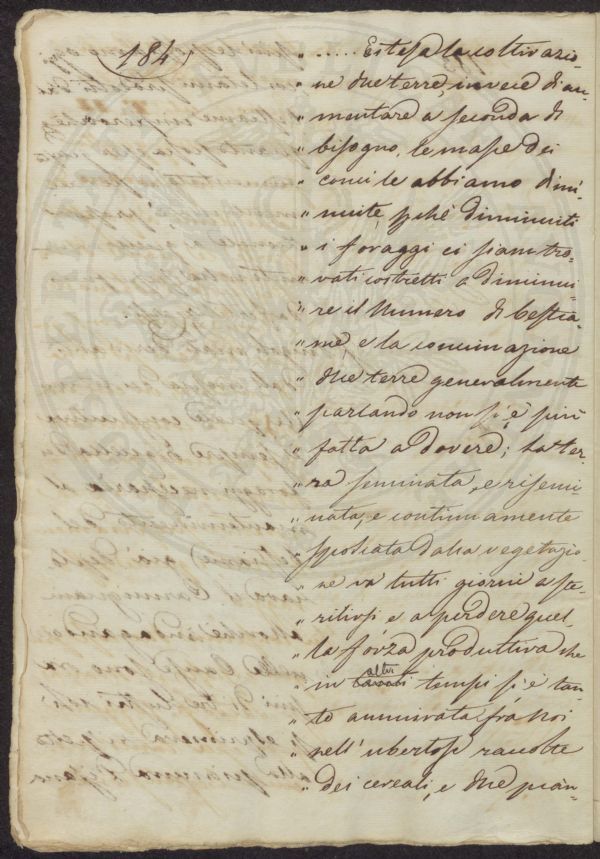 184
" ..... Estesa la coltivazio-
" ne due terre, invece di au-
" mentare a seconda di
" bisogno, le masse dei
" conci le abbiamo dimi-
" nuite, pché diminuiti
" i foraggi ci siam tro-
" vati costretti a diminui-
" re il Numero di bestia-
" me, e la concimazione
" due terre generalmente
" parlando non si è più
" fatta a dovere; la ter-
" ra seminata, e risemi
" nata, e continuamente
" spossata dalla vegetazio-
" ne va tutti giorni a ste-
" rilirsi e a perdere quel-
" la forza produttiva che
" in altri tempi si è tan-
" to ammirata frà noi
" nell' ubertose raccolte
" dei cereali, e due pian-